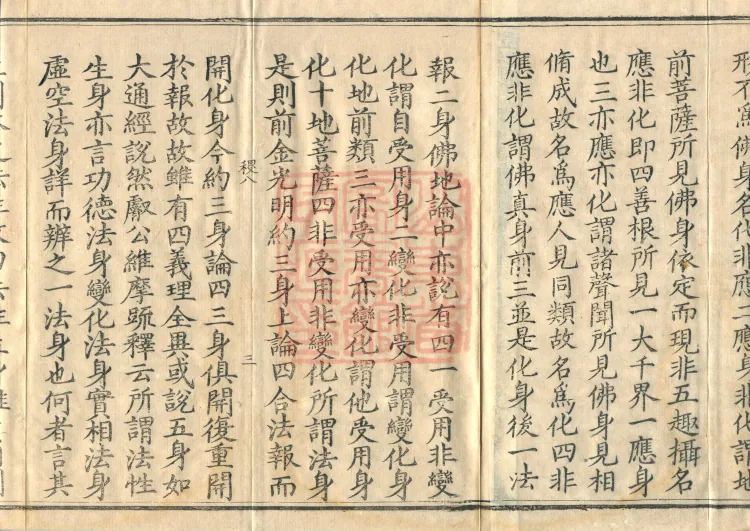 形不為佛身名化非應二應身非化謂地
前菩薩所見佛身依定而現非五趣攝名
應非化即四善根所見一大千界一應身
也三亦應亦化謂諸聲聞所見佛身見相
脩成故名為應人見同類故名為化四非
應非化謂佛真身前三並是化身後一法
報二身佛地論中亦說有四一受用非變
化謂自受用身二變化非受用謂變化身
化地前類三亦受用亦變化謂他受用身
化十地菩薩四非受用非變化所謂法身
是則前金光明約三身上論四合法報而
稷八 三
開化身今約三身論四三身俱開復重開
於報故故雖有四義理全異或說五身如
大通經說然叡公維摩疏釋云所謂法性
生身亦言功德法身變化法身實相法身
虛空法身詳而辨之一法身也何者言其